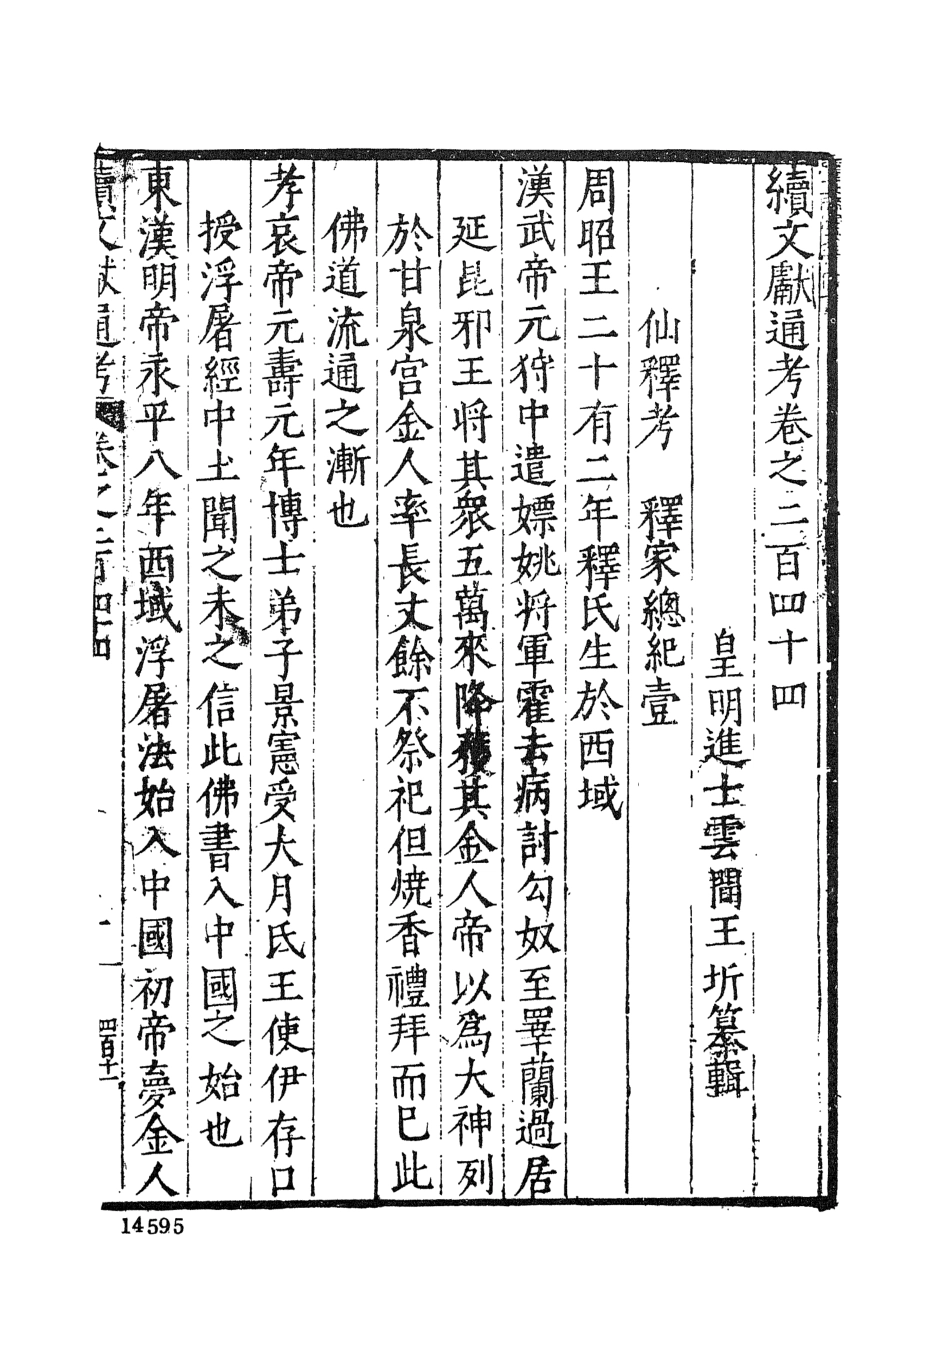 續文獻通考卷之二百四十四
皇明進士雲間王圻纂輯
仙釋考　釋家總紀壹
周昭王二十有二年釋氏生於西域
漢武帝元狩中遣嫖姚將軍霍去病討匈奴至睪蘭過居
延昆邪王將其眾五萬來降獲其金人帝以爲大神列
於甘泉宮金人率長丈餘不祭祀但燒香禮拜而巳此
佛道流通之漸也
孝哀帝元壽元年博士弟子景憲受大月氏王使伊存口
授浮屠經中土聞之未之信此佛書入中國之始也
東漢明帝永平八年西域浮屠法始入中國初帝夢金人
續文獻通考 卷之二百四十四
一
四百十一
14595